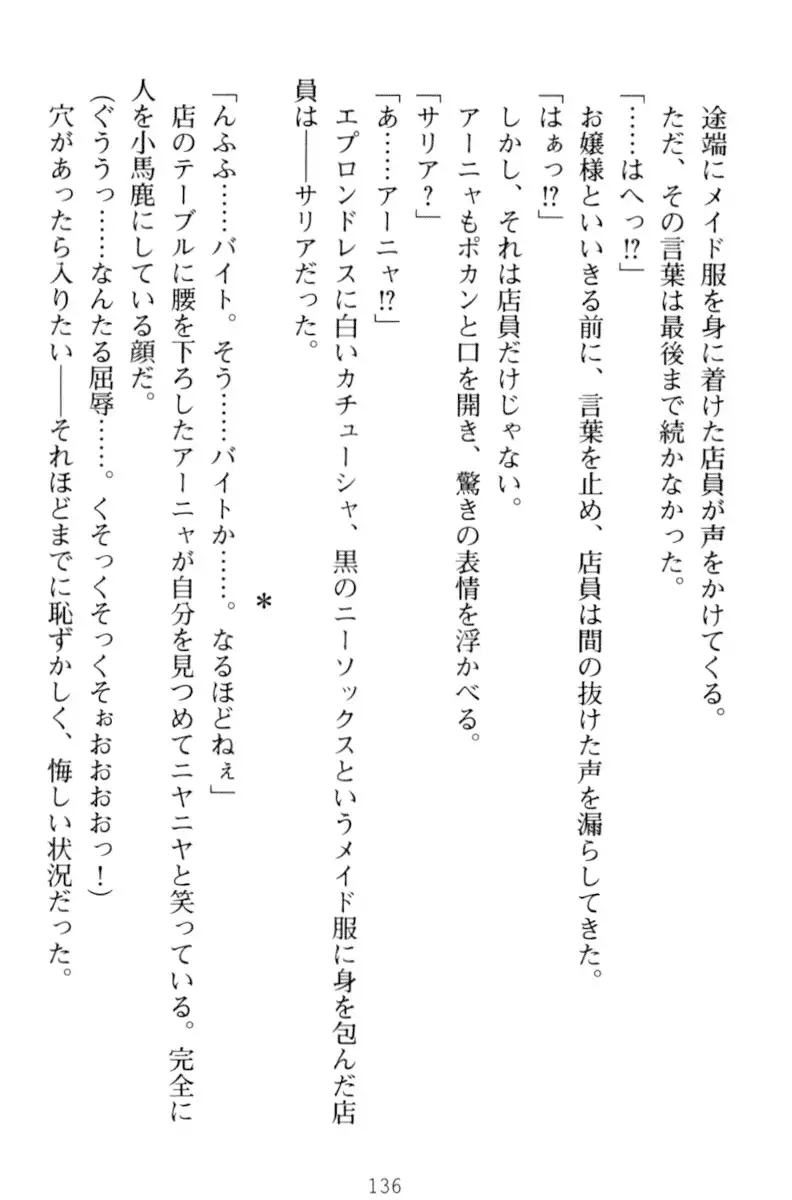 途端にメイド服を身に着けた店員が声をかけてくる。
ただ、その言葉は最後まで続かなかった。
「……はへっ!?」
お嬢様といいきる前に、言葉を止め、店員は間の抜けた声を漏らしてきた。
「はぁっ!?」
しかし、それは店員だけじゃない。
アーニャもポカンと口を開き、驚きの表情を浮かべる。
「サリア？」
「あ……アーニャ!?」
エプロンドレスに白いカチューシャ、黒のニーソックスというメイド服に身を包んだ店
員は――サリアだった。
＊
「んふふ……バイト。そう……バイトか……。なるほどねぇ」
店のテーブルに腰を下ろしたアーニャが自分を見つめてニヤニヤと笑っている。完全に
人を小馬鹿にしている顔だ。
（ぐううっ……なんたる屈辱……。くそっくそっくそぉおおおおっ！）
穴があったら入りたい――それほどまでに恥ずかしく、悔しい状況だった。
136